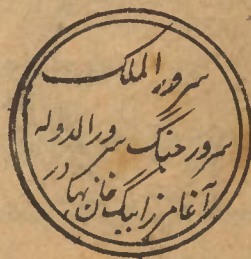 سرور الملک
سرور جنگ سرور الدوله
آغا مرزا بیگ خان بهادر